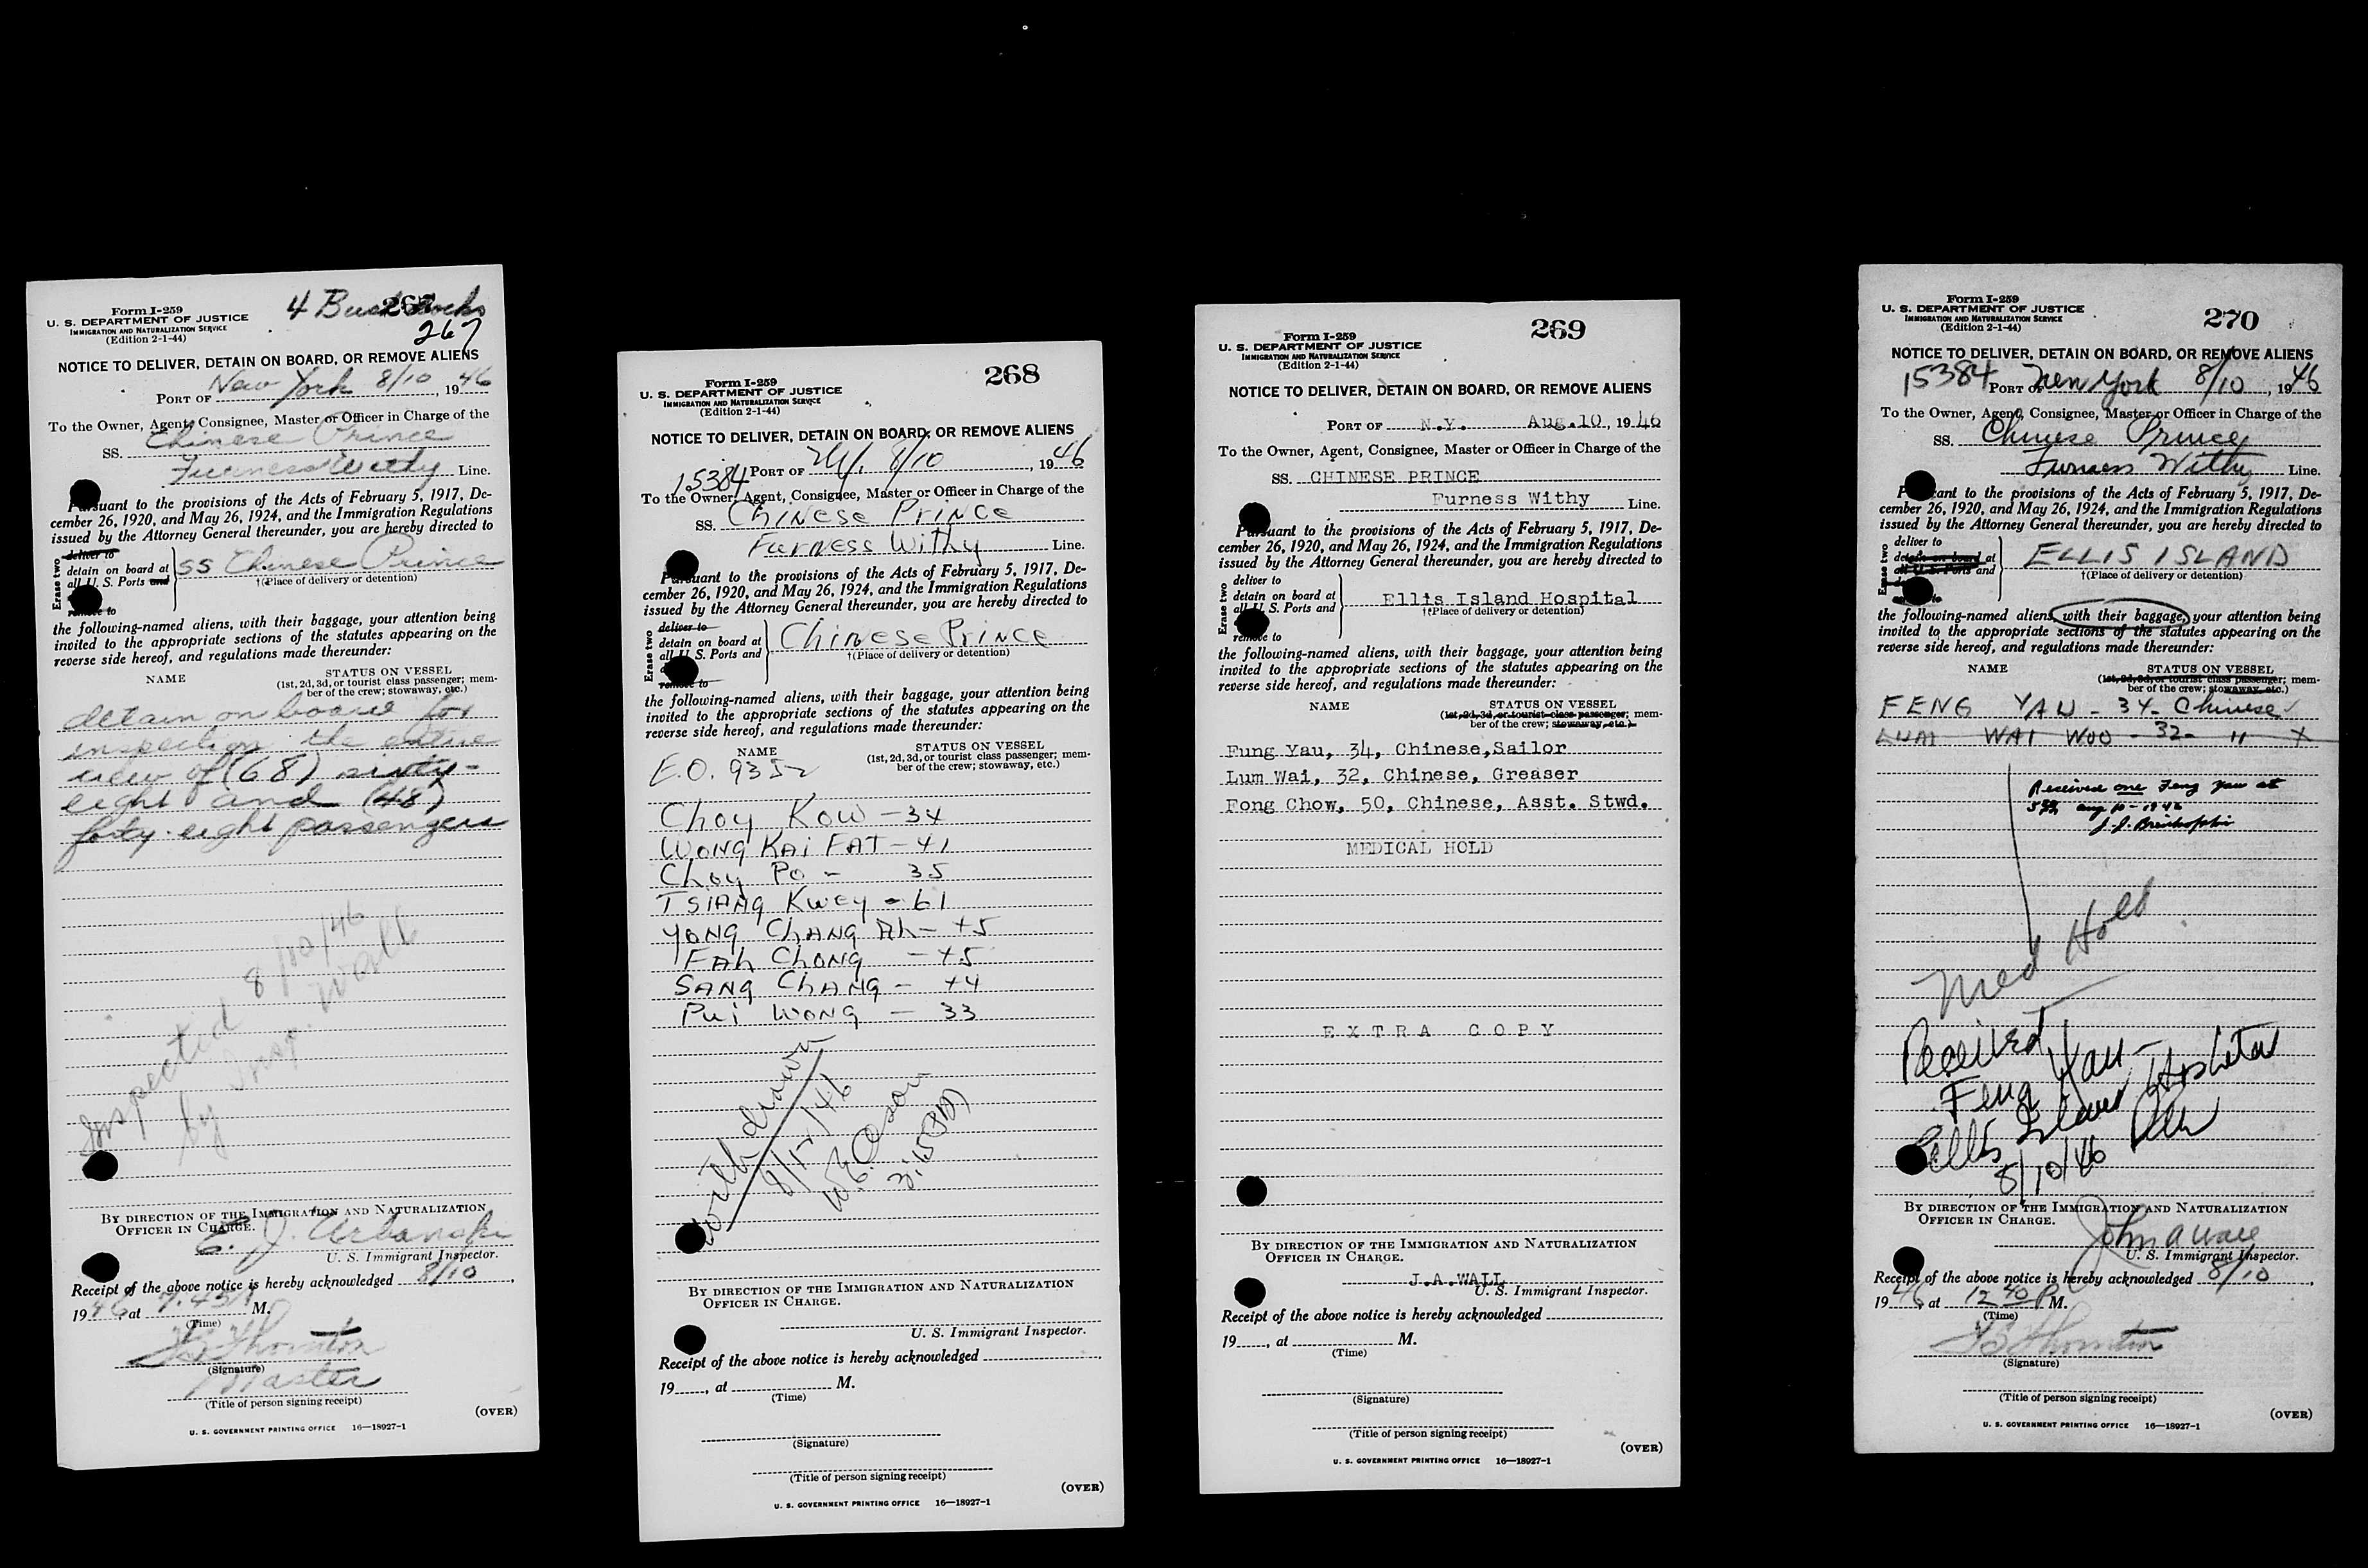 Form I-259
U. S. DEPARTMENT OF JUSTICE
IMMIGRATION AND NATURALIZATION SERVICE
(Edition 2-1-44)
4 Bush Docks
267
NOTICE TO DELIVER, DETAIN ON BOARD, OR REMOVE ALIENS
PORT OF New York 8/10, 1946
To the Owner, Agent, Consignee, Master or Officer in Charge of the
SS. Chinese Prince
Furness Withy Line.
Pursuant to the provisions of the Acts of February 5, 1917, De-
cember 26, 1920, and May 26, 1924, and the Immigration Regulations
issued by the Attorney General thereunder, you are hereby directed to
Erase two
deliver to
detain on board at
all U. S. Ports and
remove to
SS Chinese Prince
†(Place of delivery or detention)
the following-named aliens, with their baggage, your attention being
invited to the appropriate sections of the statutes appearing on the
reverse side hereof, and regulations made thereunder:
NAME
STATUS ON VESSEL
(1st, 2d, 3d, or tourist class passenger; mem-
ber of the crew; stowaway, etc.)
detain on board for
inspection the entire
crew of (68) sixty-
eight and (48)
forty-eight passengers
Inspected 8/10/46
by Insp. Wall
BY DIRECTION OF THE IMMIGRATION AND NATURALIZATION
OFFICER IN CHARGE.
E. J. Urbanski
U. S. Immigrant Inspector.
Receipt of the above notice is hereby acknowledged 8/10,
1946, at 7.45 M.
(Time)
Thornton
(Signature)
Master
(Title of person signing receipt)
(OVER)
U. S. GOVERNMENT PRINTING OFFICE 16—18927-1
Form I-259
U. S. DEPARTMENT OF JUSTICE
IMMIGRATION AND NATURALIZATION SERVICE
(Edition 2-1-44)
268
NOTICE TO DELIVER, DETAIN ON BOARD, OR REMOVE ALIENS
15384 PORT OF NY. 8/10, 1946
To the Owner, Agent, Consignee, Master or Officer in Charge of the
SS. Chinese Prince
Furness Withy Line.
Pursuant to the provisions of the Acts of February 5, 1917, De-
cember 26, 1920, and May 26, 1924, and the Immigration Regulations
issued by the Attorney General thereunder, you are hereby directed to
Erase two
deliver to
detain on board at
all U. S. Ports and
remove to
Chinese Prince
†(Place of delivery or detention)
the following-named aliens, with their baggage, your attention being
invited to the appropriate sections of the statutes appearing on the
reverse side hereof, and regulations made thereunder:
NAME
STATUS ON VESSEL
(1st, 2d, 3d, or tourist class passenger; mem-
ber of the crew; stowaway, etc.)
E.O. 9352
Choy Kow - 34
Wong Kai Fat - 41
Choy Po - 35
Tsiang Kwey - 61
Yong Chang Ah - 45
Fah Chong - 45
Sang Chang - 44
Pui Wong - 33
Withdrawn
8/15/46
BY DIRECTION OF THE IMMIGRATION AND NATURALIZATION
OFFICER IN CHARGE.
U. S. Immigrant Inspector.
Receipt of the above notice is hereby acknowledged
19, at M.
(Time)
(Signature)
(Title of person signing receipt)
(OVER)
U. S. GOVERNMENT PRINTING OFFICE 16—18927-1
Form I-259
U. S. DEPARTMENT OF JUSTICE
IMMIGRATION AND NATURALIZATION SERVICE
(Edition 2-1-44)
269
NOTICE TO DELIVER, DETAIN ON BOARD, OR REMOVE ALIENS
PORT OF N.Y. Aug.10, 1946
To the Owner, Agent, Consignee, Master or Officer in Charge of the
SS. CHINESE PRINCE
Furness Withy Line.
Pursuant to the provisions of the Acts of February 5, 1917, De-
cember 26, 1920, and May 26, 1924, and the Immigration Regulations
issued by the Attorney General thereunder, you are hereby directed to
Erase two
deliver to
detain on board at
all U. S. Ports and
remove to
Ellis Island Hospital
†(Place of delivery or detention)
the following-named aliens, with their baggage, your attention being
invited to the appropriate sections of the statutes appearing on the
reverse side hereof, and regulations made thereunder:
NAME
STATUS ON VESSEL
(1st, 2d, 3d, or tourist class passenger; mem-
ber of the crew; stowaway, etc.)
Fung Yau, 34, Chinese,Sailor
Lum Wai, 32, Chinese, Greaser
Fong Chow, 50, Chinese, Asst. Stwd.
MEDICAL HOLD
EXTRA COPY
BY DIRECTION OF THE IMMIGRATION AND NATURALIZATION
OFFICER IN CHARGE.
J.A.WALL
U. S. Immigrant Inspector.
Receipt of the above notice is hereby acknowledged
19, at M.
(Time)
(Signature)
(Title of person signing receipt)
(OVER)
U. S. GOVERNMENT PRINTING OFFICE 16—18927-1
Form I-259
U. S. DEPARTMENT OF JUSTICE
IMMIGRATION AND NATURALIZATION SERVICE
(Edition 2-1-44)
270
NOTICE TO DELIVER, DETAIN ON BOARD, OR REMOVE ALIENS
15384 PORT OF New York 8/10, 1946
To the Owner, Agent, Consignee, Master or Officer in Charge of the
SS. Chinese Prince
Furness Withy Line.
Pursuant to the provisions of the Acts of February 5, 1917, De-
cember 26, 1920, and May 26, 1924, and the Immigration Regulations
issued by the Attorney General thereunder, you are hereby directed to
Erase two
deliver to
detain on board at
all U. S. Ports and
ELLIS ISLAND
†(Place of delivery or detention)
the following-named aliens, with their baggage, your attention being
invited to the appropriate sections of the statutes appearing on the
reverse side hereof, and regulations made thereunder:
NAME
STATUS ON VESSEL
(1st, 2d, 3d, or tourist class passenger; mem-
ber of the crew; stowaway, etc.)
FENG YAU - 34 - Chinese
LUM WAI WOO - 32 - " X
Received one Feng Yau at
Aug 10 - 1946
Med Hold
Received
Feng Yau -
Ellis Island Hospital
8/10/46
BY DIRECTION OF THE IMMIGRATION AND NATURALIZATION
OFFICER IN CHARGE.
John A Wall
U. S. Immigrant Inspector.
Receipt of the above notice is hereby acknowledged 8/10,
1946, at 12 40 P M.
(Time)
Thornton
(Signature)
(Title of person signing receipt)
(OVER)
U. S. GOVERNMENT PRINTING OFFICE 16—18927-1